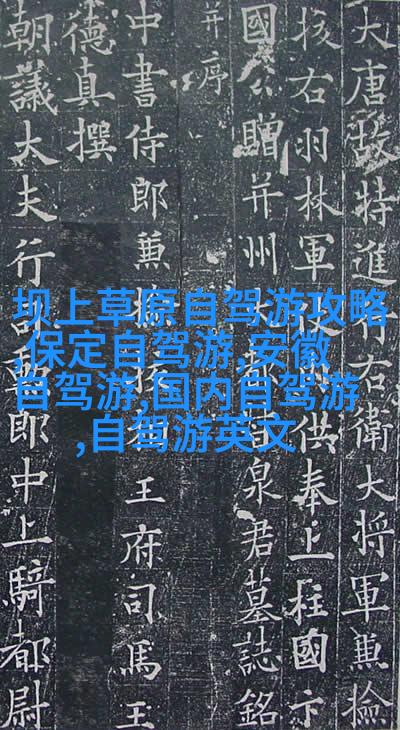 大唐故特進行右衛大將軍兼撿
挍右羽林軍供奉上柱國卞
國公贈并州大都督泉君墓誌銘
并序
中書侍郎兼撿挍相王府司馬王
德真撰
朝議大夫行司勳郎中上騎都尉
坝上草原自驾游攻略
保定自驾游,安徽
自驾游,国内自驾游
,自驾游英文